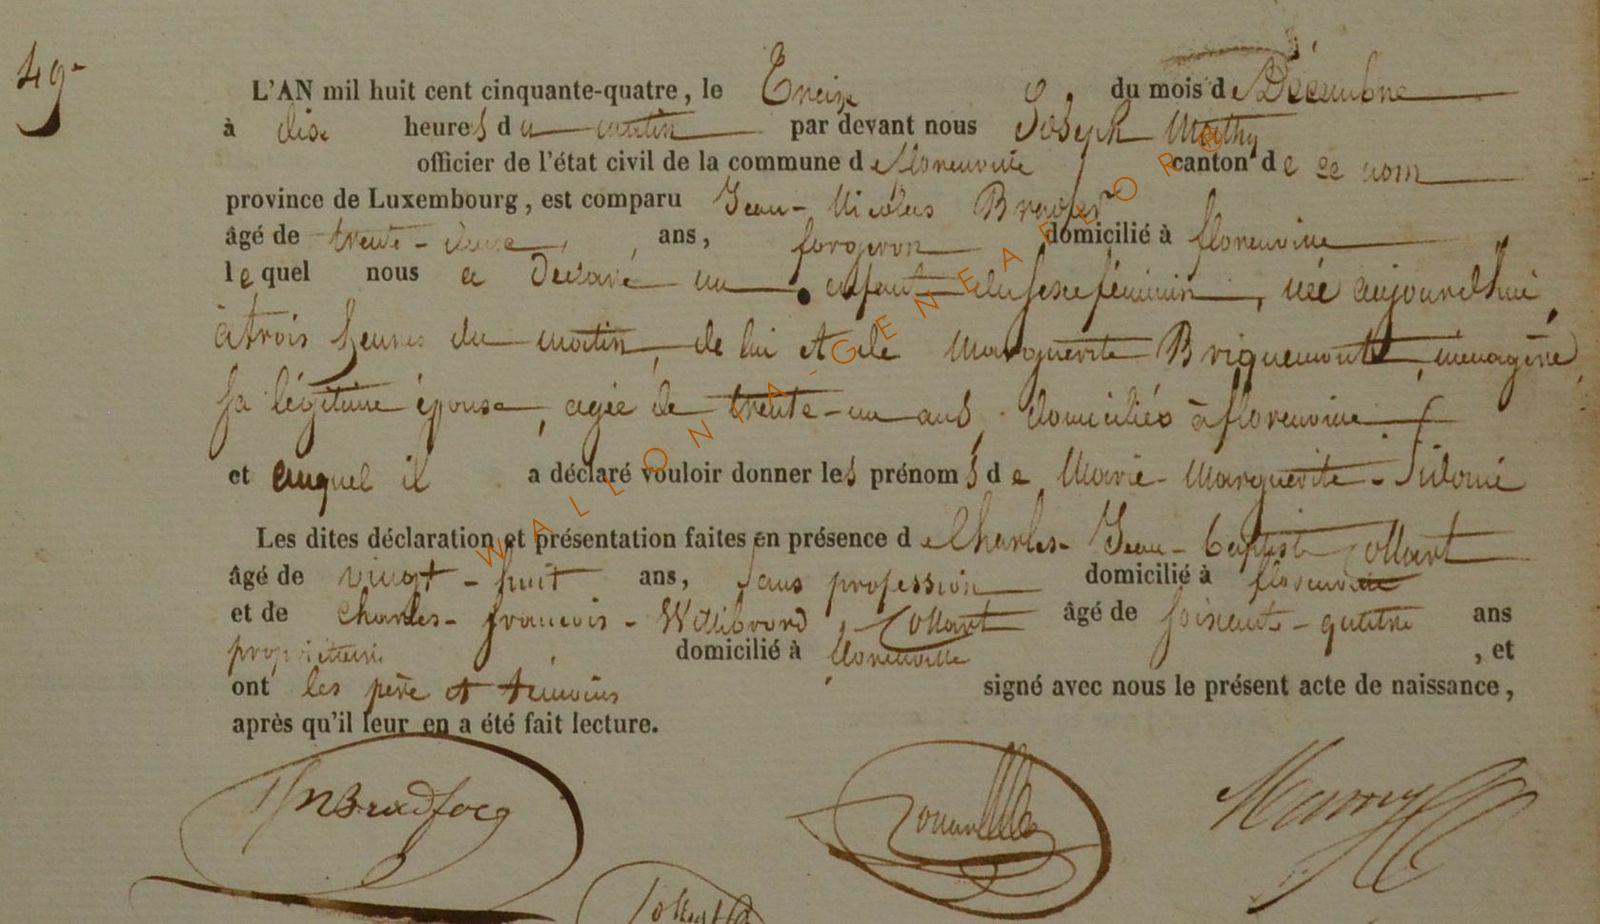 49
L'AN mil huit cent cinquante-quatre, le Treize du mois de Décembre
à dix heures du matin par devant nous Joseph Mathy
officier de l'état civil de la commune de florenville canton de ce nom
province de Luxembourg, est comparu Jean-Nicolas
âgé de trente-deux ans, forgeron domicilié à florenville
lequel nous a déclaré un enfant du sexe féminin, née aujourd'hui,
à trois heures du matin, de lui et de Marguerite Briquemont, ménagère,
sa légitime épouse, agée de trente-un ans, domiciliés à florenville
et auquel il a déclaré vouloir donner les prénoms de Marie-Marguerite-Sidonie
Les dites déclaration et présentation faites en présence de Charles-Jean-baptiste Collart
âgé de vingt-huit ans, sans profession domicilié à florenville
et de Charles-françois-Willibrord Collart âgé de soixante-quatre ans
propriétaire domicilié à florenville, et
ont les père et témoins signé avec nous le présent acte de naissance,
après qu'il leur en a été fait lecture.
WALLONIA-GENEAFLOR®